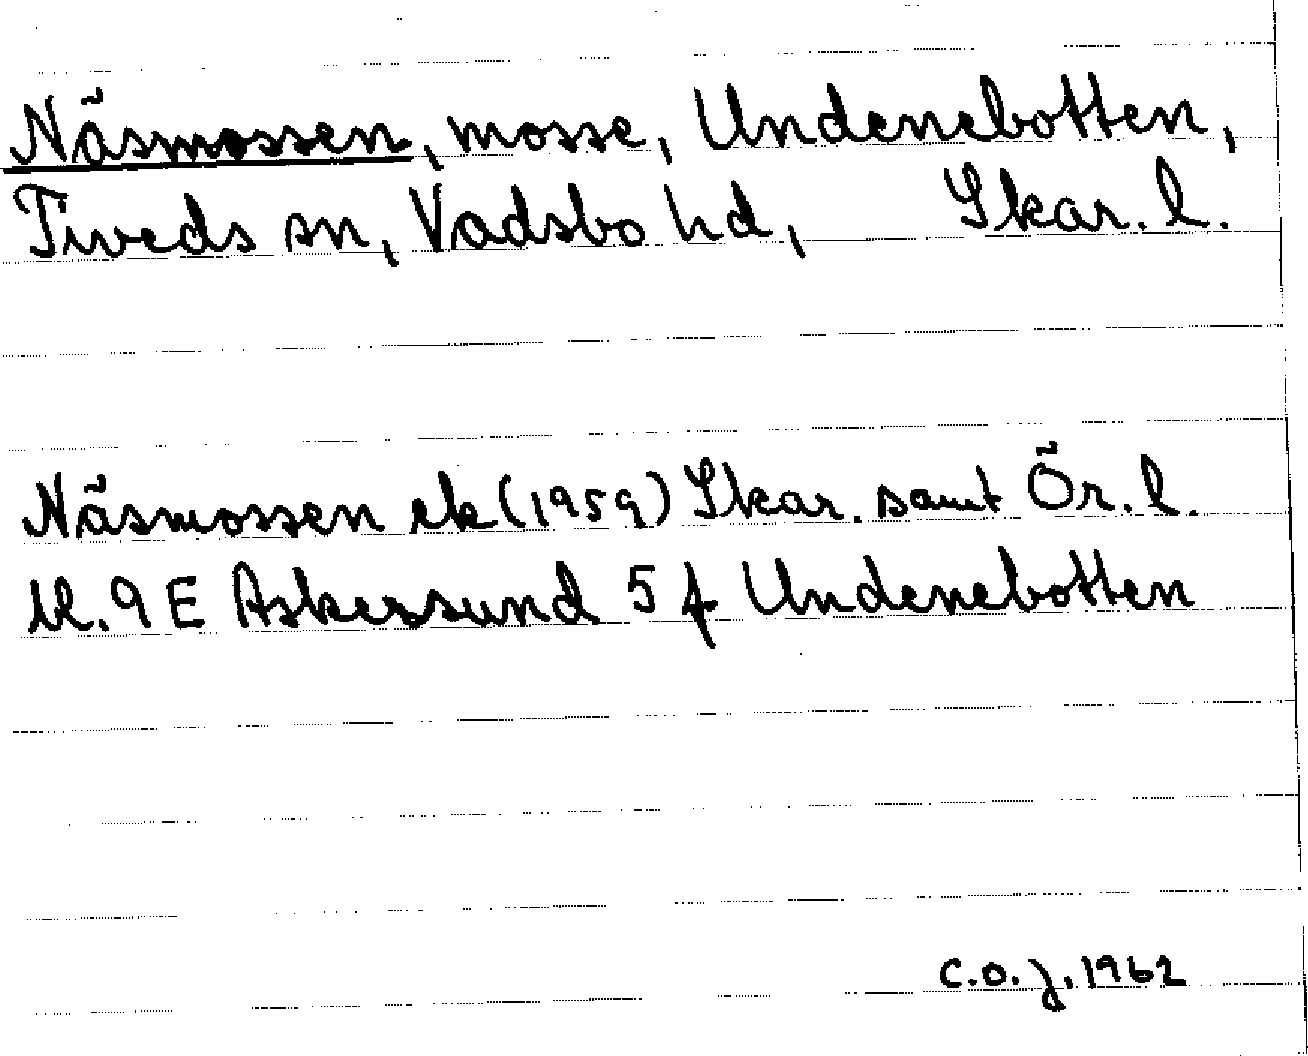 Näsmossen, mosse, Undenebotten,
Tiveds sn, Vadsbo hd, Skar. l.
Näsmossen ek (1959) Skar. samt Ör. l.
Bl. 9 E Askersund 5 f Undenebotten
C.O.J. 1962